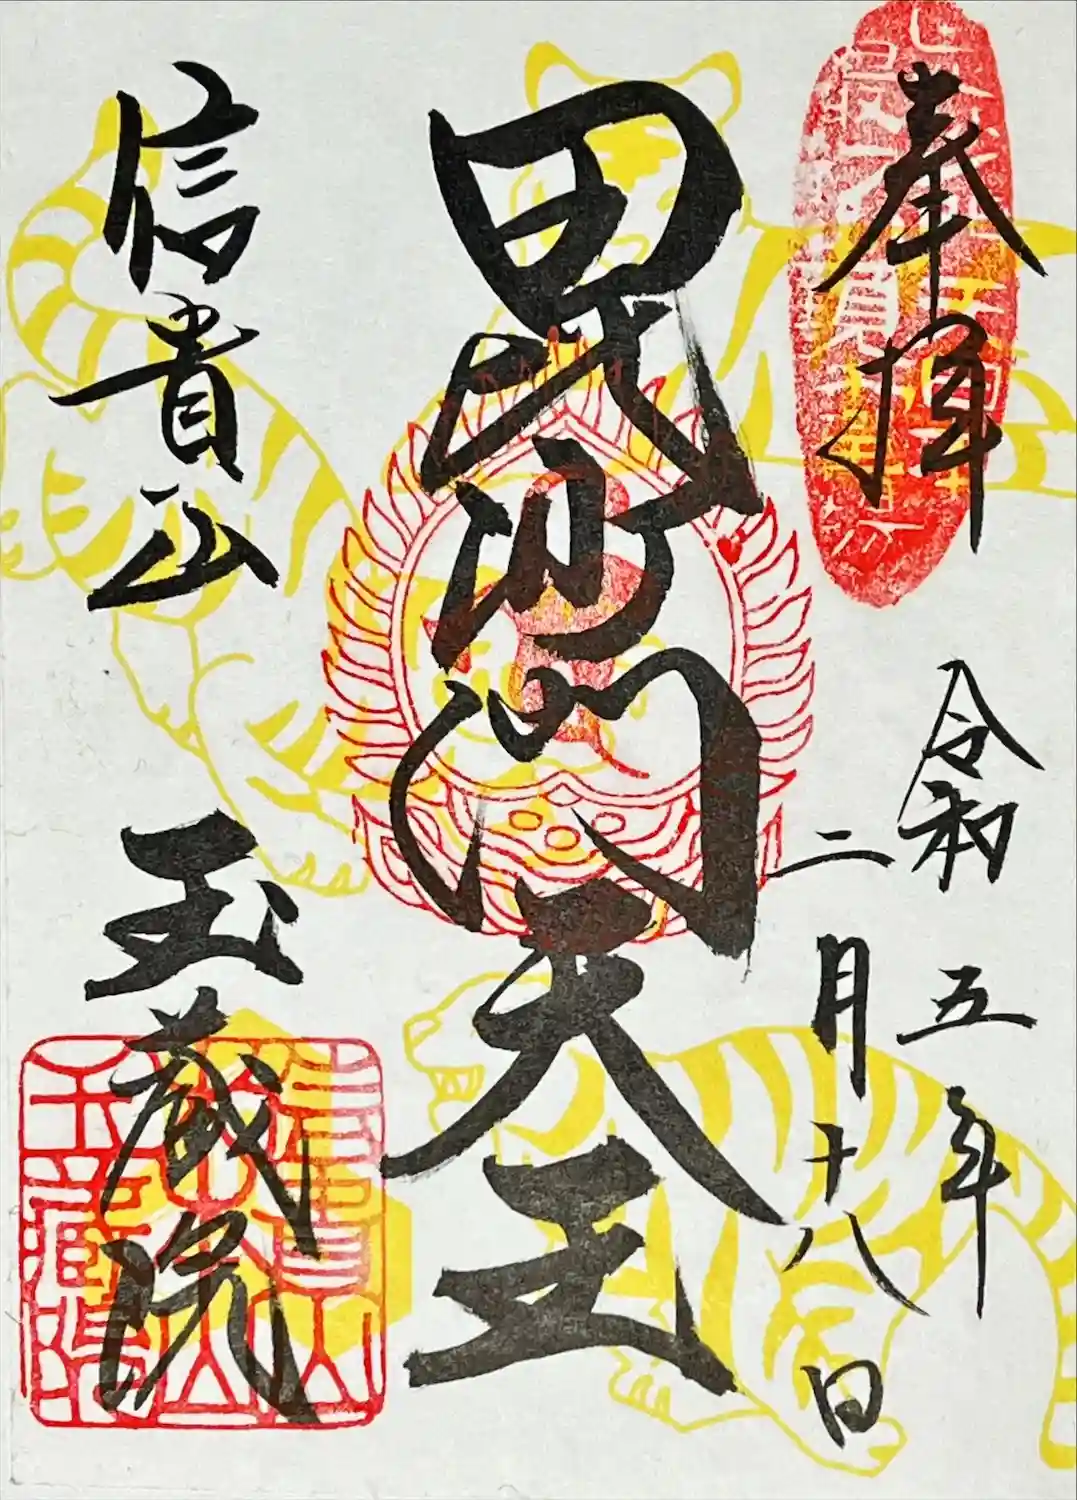 奉拝
令和五年
二月十八日
毘沙門天王
信貴山
玉蔵院